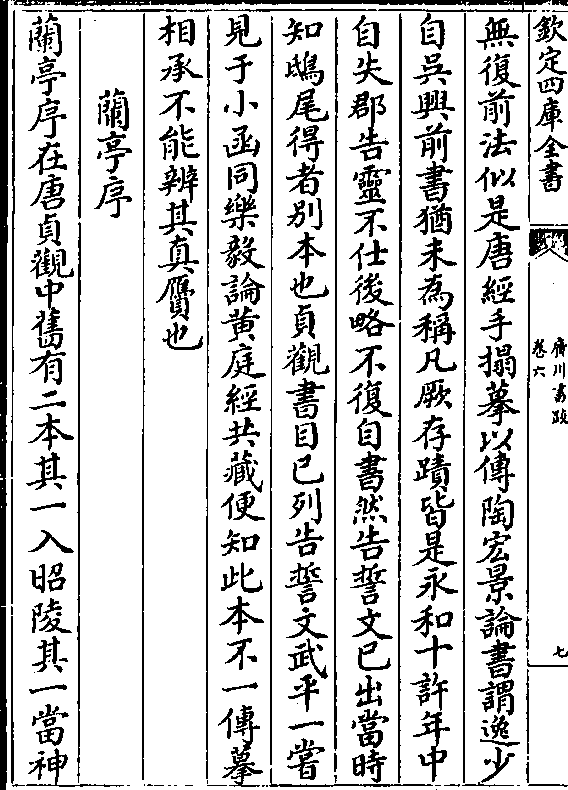 欽定四庫全書
廣川書跋
卷六
七
無復前法似是唐經手搨摹以傳陶宏景論書謂逸少
自吳興前書猶未為稱凡厥存蹟皆是永和十許年中
自失郡告靈不仕後略不復自書然告誓文已出當時
知鴟尾得者别本也貞觀書目已列告誓文武平一嘗
見于小函同樂毅論黄庭經共藏便知此本不一傳摹
相承不能辨其真贋也
蘭亭序
蘭亭序在唐貞觀中舊有二本其一入昭陵其一當神